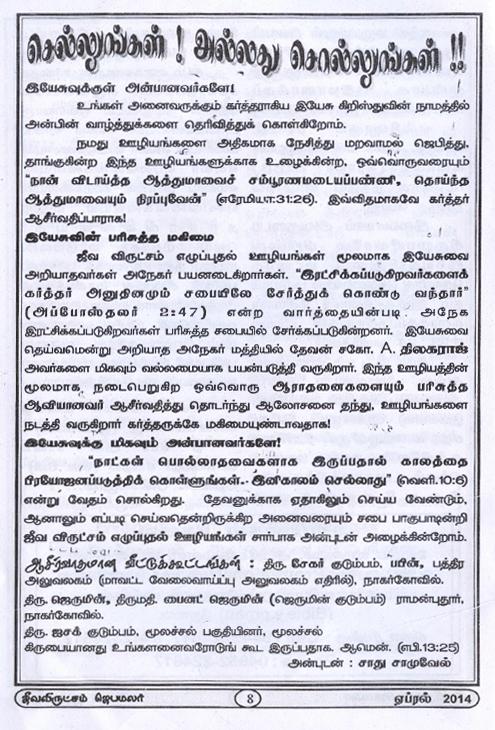 செல்லுங்கள் ! அல்லது சொல்லுங்கள் !!
இயேசுவுக்குள் அன்பானவர்களே!
உங்கள் அனைவருக்கும் கர்த்தராகிய இயேசு கிறிஸ்துவின் நாமத்தில்
அன்பின் வாழ்த்துக்களை தெரிவித்துக் கொள்கிறோம்.
நமது ஊழியங்களை அதிகமாக நேசித்து மறவாமல் ஜெபித்து,
தாங்குகின்ற இந்த ஊழியங்களுக்காக உழைக்கின்ற, ஒவ்வொருவரையும்
“நான் விடாய்த்த ஆத்துமாவைச் சம்பூரணமடையப்பண்ணி, தொய்ந்த
ஆத்துமாவையும் நிரப்புவேன்” (எரேமியா:31:26). இவ்விதமாகவே கர்த்தர்
ஆசீர்வதிப்பாராக!
இயேசுவின் பரிசுத்த மகிமை
ஜீவ விருட்சம் எழுப்புதல் ஊழியங்கள் மூலமாக இயேசுவை
அறியாதவர்கள் அநேகர் பயனடைகிறார்கள். “இரட்சிக்கப்படுகிறவர்களைக்
கர்த்தர் அனுதினமும் சபையிலே சேர்த்துக் கொண்டு வந்தார்”
(அப்போஸ்தலர் 2:47) என்ற வார்த்தையின்படி அநேக
இரட்சிக்கப்படுகிறவர்கள் பரிசுத்த சபையில் சேர்க்கப்படுகின்றனர். இயேசுவை
தெய்வமென்று அறியாத அநேகர் மத்தியில் தேவன் சகோ. A. திலகராஜ்
அவர்களை மிகவும் வல்லமையாக பயன்படுத்தி வருகிறார். இந்த ஊழியத்தின்
மூலமாக நடைபெறுகிற ஒவ்வொரு ஆராதனைகளையும் பரிசுத்த
ஆவியானவர் ஆசீர்வதித்து தொடர்ந்து ஆலோசனை தந்து, ஊழியங்களை
நடத்தி வருகிறார் கர்த்தருக்கே மகிமையுண்டாவதாக!
இயேசுவுக்கு மிகவும் அன்பானவர்களே!
“நாட்கள் பொல்லாதவைகளாக இருப்பதால் காலத்தை
பிரயோஜனப்படுத்திக் கொள்ளுங்கள். இனிகாலம் செல்லாது” (வெளி.10:6)
என்று வேதம் சொல்கிறது. தேவனுக்காக ஏதாகிலும் செய்ய வேண்டும்,
ஆனாலும் எப்படி செய்வதென்றிருக்கிற அனைவரையும் சபை பாகுபாடின்றி
ஜீவ விருட்சம் எழுப்புதல் ஊழியங்கள் சார்பாக அன்புடன் அழைக்கின்றோம்.
ஆசீர்வாதமான வீட்டுக்கூட்டங்கள் : திரு. சேகர் குடும்பம், பயின், பத்திர
அலுவலகம் (மாவட்ட வேலைவாய்ப்பு அலுவலகம் எதிரில்), நாகர்கோவில்.
திரு. ஜெருமின், திருமதி. பைனட் ஜெருமின் (ஜெருமின் குடும்பம்) ராமன்புதூர்,
நாகர்கோவில்.
திரு. ஐசக் குடும்பம், மூலச்சல் பகுதியினர், மூலச்சல்
கிருபையானது உங்களனைவரோடுங் கூட இருப்பதாக. ஆமென். (எபி.13:25)
அன்புடன் : சாது சாமுவேல்
ஜீவவிருட்சம் ஜெபமலர்
8
ஏப்ரல் 2014